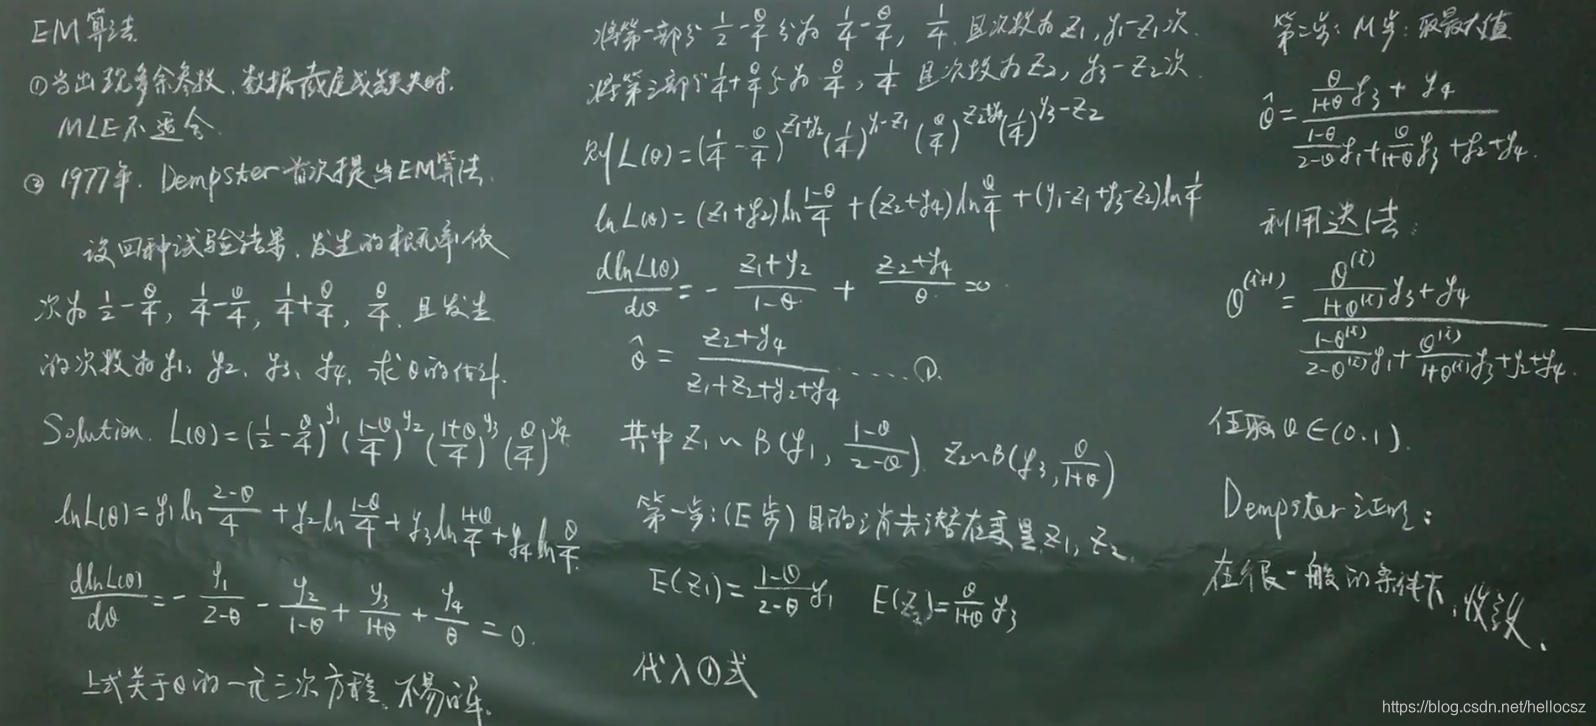 EM算法
①当出现多余参数,数据截尾或缺失时,
MLE不适合.
② 1977年. Dempster首次提出EM算法.
设四种试验结果,发生的概率依
次为 1/2-θ/4, 1/4-θ/4, 1/4+θ/4, θ/4, 且发生
的次数为y₁, y₂, y₃, y₄, 求θ的估计.
Solution. L(θ)=(1/2-θ/4)^y₁ ((1-θ)/4)^y₂ ((1+θ)/4)^y₃ (θ/4)^y₄
lnL(θ)=y₁ln (2-θ)/4 + y₂ln (1-θ)/4 + y₃ln (1+θ)/4 + y₄ln θ/4.
dlnL(θ)/dθ = - y₁/(2-θ) - y₂/(1-θ) + y₃/(1+θ) + y₄/θ = 0.
上式关于θ的一元三次方程,不易解.
将第一部分 1/2-θ/4 分为 1/4-θ/4, 1/4, 且次数为z₁, y₁-z₁次.
将第三部分 1/4+θ/4 分为 θ/4, 1/4 且次数为z₂, y₃-z₂次.
则L(θ)=(1/4-θ/4)^(z₁+y₂) (1/4)^(y₁-z₁) (θ/4)^(z₂+y₄) (1/4)^(y₃-z₂)
lnL(θ)=(z₁+y₂)ln (1-θ)/4 + (z₂+y₄)ln θ/4 + (y₁-z₁+y₃-z₂)ln 1/4
dlnL(θ)/dθ = - (z₁+y₂)/(1-θ) + (z₂+y₄)/θ = 0
θ̂ = (z₂+y₄)/(z₁+z₂+y₂+y₄) ……①
其中 z₁~B(y₁, (1-θ)/(2-θ)) z₂~B(y₃, θ/(1+θ))
第一步:(E步) 目的消去潜在变量z₁, z₂.
E(z₁)= (1-θ)/(2-θ) y₁ E(z₂)= θ/(1+θ) y₃
代入①式
第二步: M步: 取最大值
θ̂ = (θ/(1+θ) y₃ + y₄)/((1-θ)/(2-θ) y₁ + θ/(1+θ) y₃ + y₂ + y₄).
利用迭代法:
θ^(i+1) = (θ^(i)/(1+θ^(i)) y₃ + y₄)/((1-θ^(i))/(2-θ^(i)) y₁ + θ^(i)/(1+θ^(i)) y₃ + y₂ + y₄).
任取θ∈(0.1).
Dempster证明:
在很一般的条件下,收敛.
https://blog.csdn.net/hellocsz